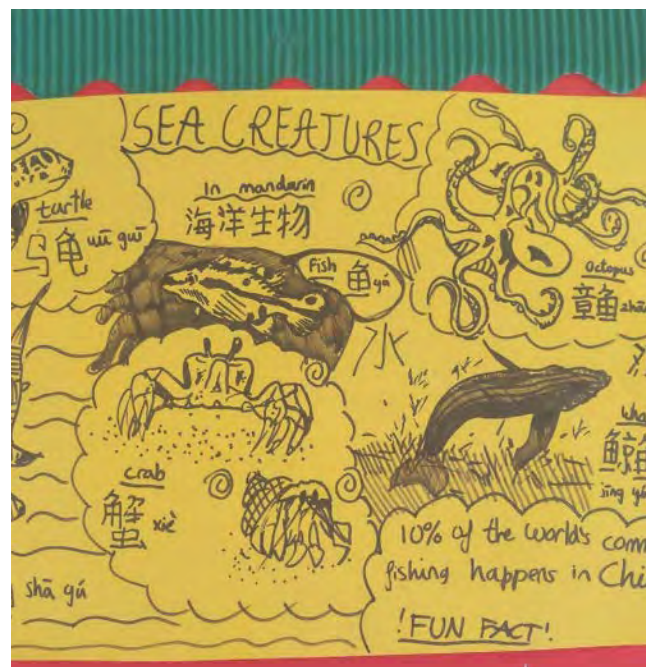 SEA CREATURES
In mandarin
海洋生物
turtle
乌龟 wū guī
Fish 鱼 yú
Octopus
章鱼
水
crab
蟹 xiè
鲸
jīng yú
shā yú
10% of the world's
fishing happens in
!FUN FACT!